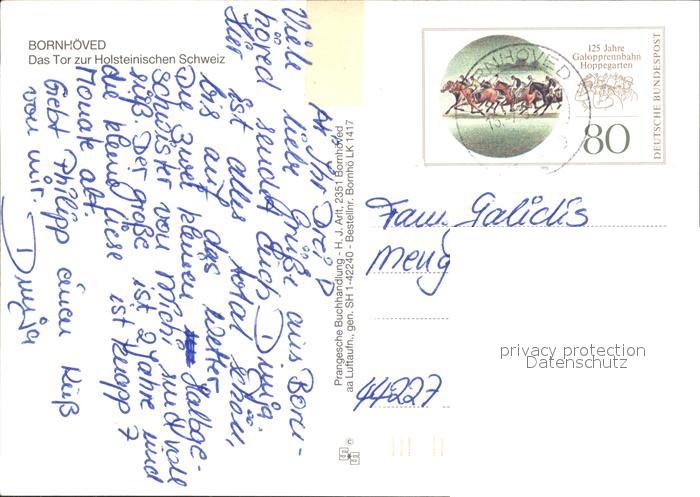 BORNHÖVED
Das Tor zur Holsteinischen Schweiz
An Ihr Drei!
Viele liebe Grüße aus Born-
höved sendet Euch
Hier ist alles total schön,
bis auf das Wetter.
Die zwei kleinen Halbge-
schwister von Michi sind voll
süß. Der große ist 2 Jahre und
die kleine ist knapp 7
Monate alt.
Gebt Philipp einen Kuß
von mir.
Prangesche Buchhandlung - H. J. Arlt, 2351 Bornhöved
aa Luftaufn., gen. SH 1-42240 - Bestellnr. Bornhö LK 1417
125 Jahre
Galopprennbahn
Hoppegarten
80
DEUTSCHE BUNDESPOST
BORNHÖVED
Fam. Galidis
Meng
44227
privacy protection
Datenschutz